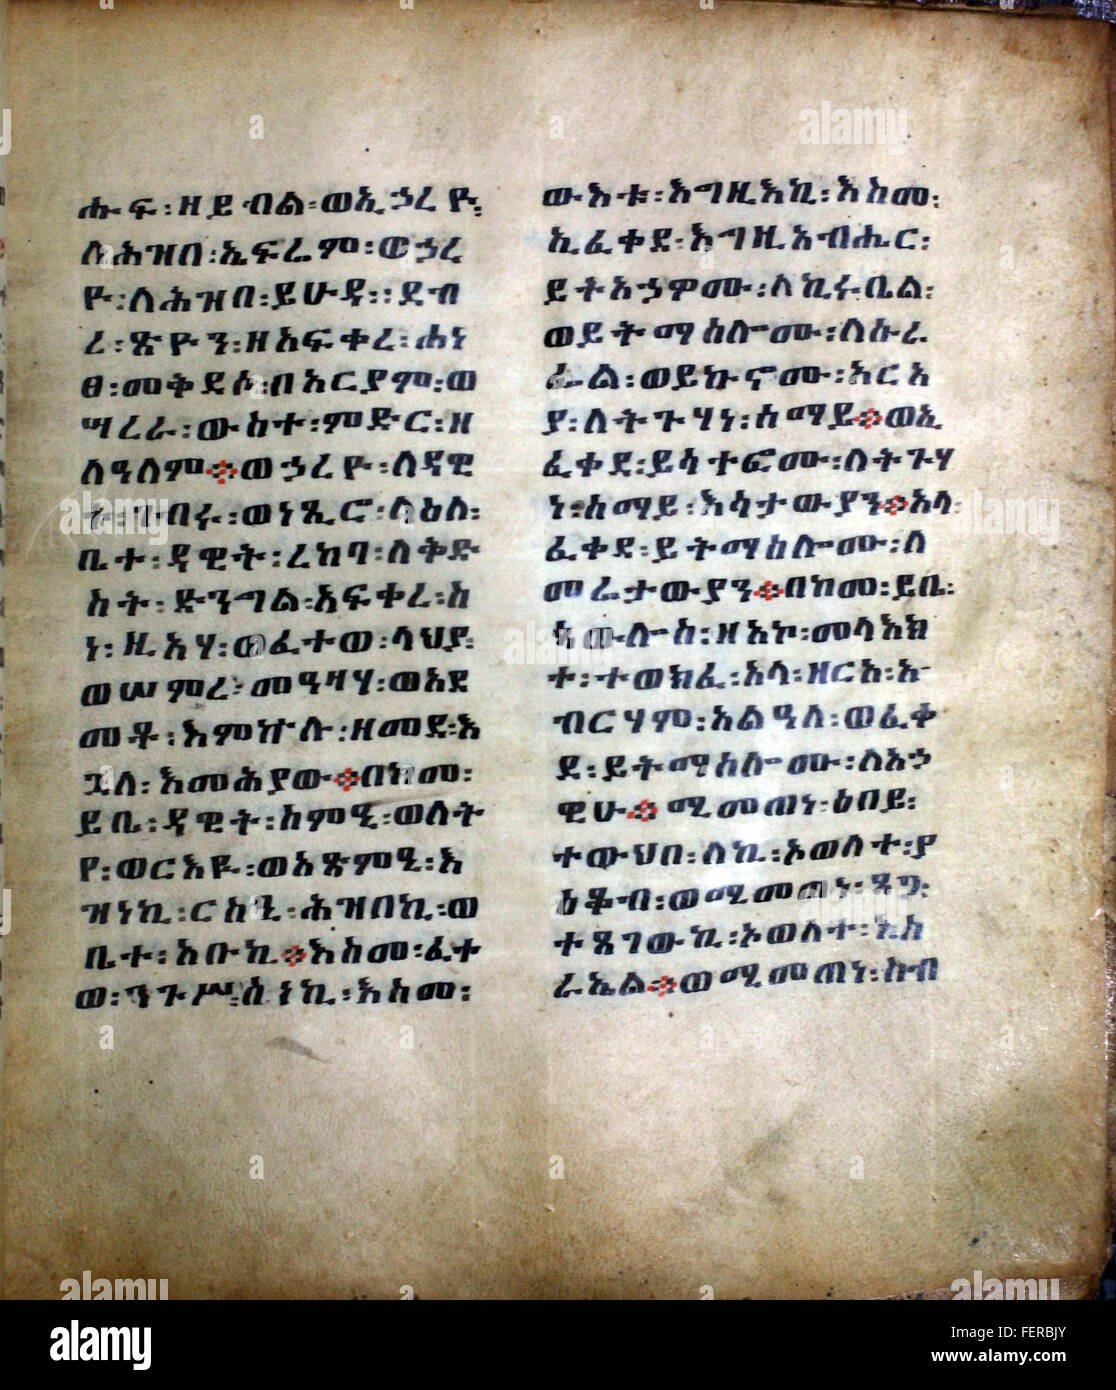 ሑፍ፡ዘይብል፡ወኢኃረዮ፡
ለሕዝበ፡ኤፍሬም፡ወኃረ
ዮ፡ለሕዝበ፡ይሁዳ፡፡ደብ
ረ፡ጽዮን፡ዘአፍቀረ፡ሐነ
ፀ፡መቅደሶ፡በአርያም፡ወ
ሣረራ፡ውስተ፡ምድር፡ዘ
ለዓለም፡፡ወኃረዮ፡ለዳዊ
ት፡ገብሩ፡ወነጺሮ፡
ቤተ፡ዳዊት፡ረከባ፡ለቅድ
ስት፡ድንግል፡አፍቀረ፡ስ
ነ፡ዚአሃ፡ወፈተወ፡ላህያ፡
ወሠምረ፡መዓዛሃ፡ወአደ
መቶ፡እምኵሉ፡ዘመደ፡እ
ጓለ፡እመሕያው፡፡በከመ፡
ይቤ፡ዳዊት፡ስምዒ፡ወለት
የ፡ወርእዪ፡ወአጽምዒ፡እ
ዝነኪ፡ርስዒ፡ሕዝበኪ፡ወ
ቤተ፡አቡኪ፡፡እስመ፡ፈተ
ወ፡ንጉሥ፡ስነኪ፡እስመ፡
ውእቱ፡እግዚእኪ፡እስመ፡
ኢፈቀደ፡እግዚአብሔር፡
ይትአኃዎሙ፡ለኪሩቤል፡
ወይትማሰሎሙ፡ለሱራ
ፌል፡ወይኩኖሙ፡አርአ
ያ፡ለትጉሃነ፡ሰማይ፡፡ወኢ
ፈቀደ፡ይላተፎሙ፡ለትጉሃ
ነ፡ሰማይ፡እሳታውያን፡፡አላ፡
ፈቀደ፡ይትማሰሎሙ፡ለ
መሬታውያን፡፡በከመ፡ይቤ፡
ጳውሎስ፡ዘአኮ፡መላእክ
ተ፡ተወክፈ፡አላ፡ዘርአ፡አ
ብርሃም፡አልዓለ፡ወፈቀ
ደ፡ይትማሰሎሙ፡ለአኃ
ዊሁ፡፡ሚመጠነ፡ዕበይ፡
ተውህበ፡ለኪ፡ኦወለተ፡ያ
ዕቆብ፡ወሚመጠነ፡ጸጋ፡
ተጸገውኪ፡ኦወለተ፡እስ
ራኤል፡፡ወሚመጠነ፡ክብ
alamy
Image ID: FERBJY
www.alamy.com